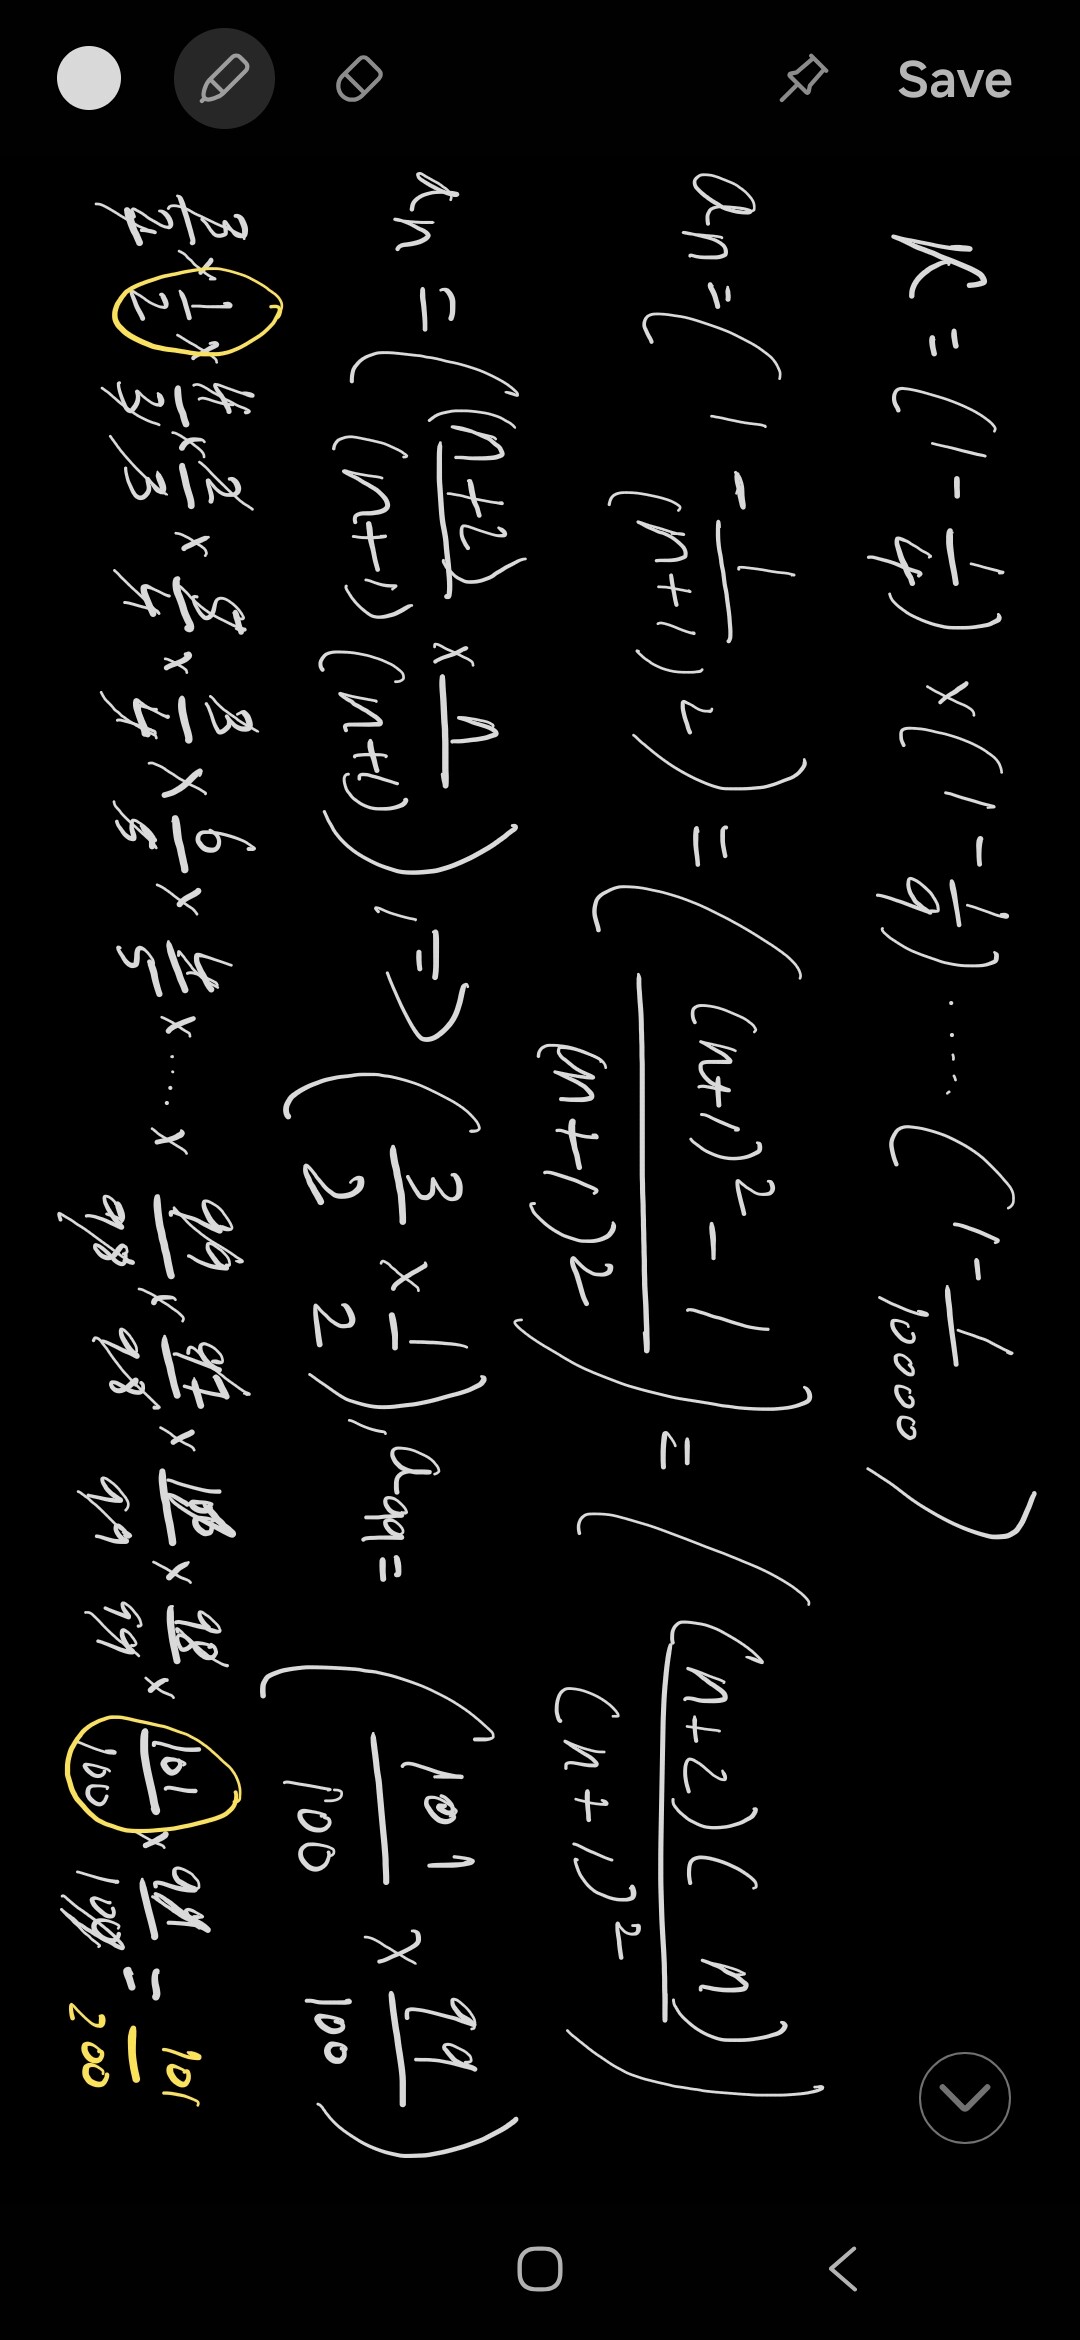 Save
K = (1 - 1/4) x (1 - 1/9) ..... (1 - 1/10000)
an = (1 - 1/(n+1)2) = ((n+1)2 - 1 / (n+1)2) = ((n+2)(n) / (n+1)2)
an = ((n+2)/(n+1) x n/(n+1)) , => (3/2 x 1/2) , a99 = (101/100 x 99/100)
3/2 x 1/2 x 4/3 x 2/3 x 5/4 x 3/4 x 6/5 x 4/5 x .... x 99/98 x 97/98 x 100/99 x 98/99 x 101/100 x 99/100 = 101/200